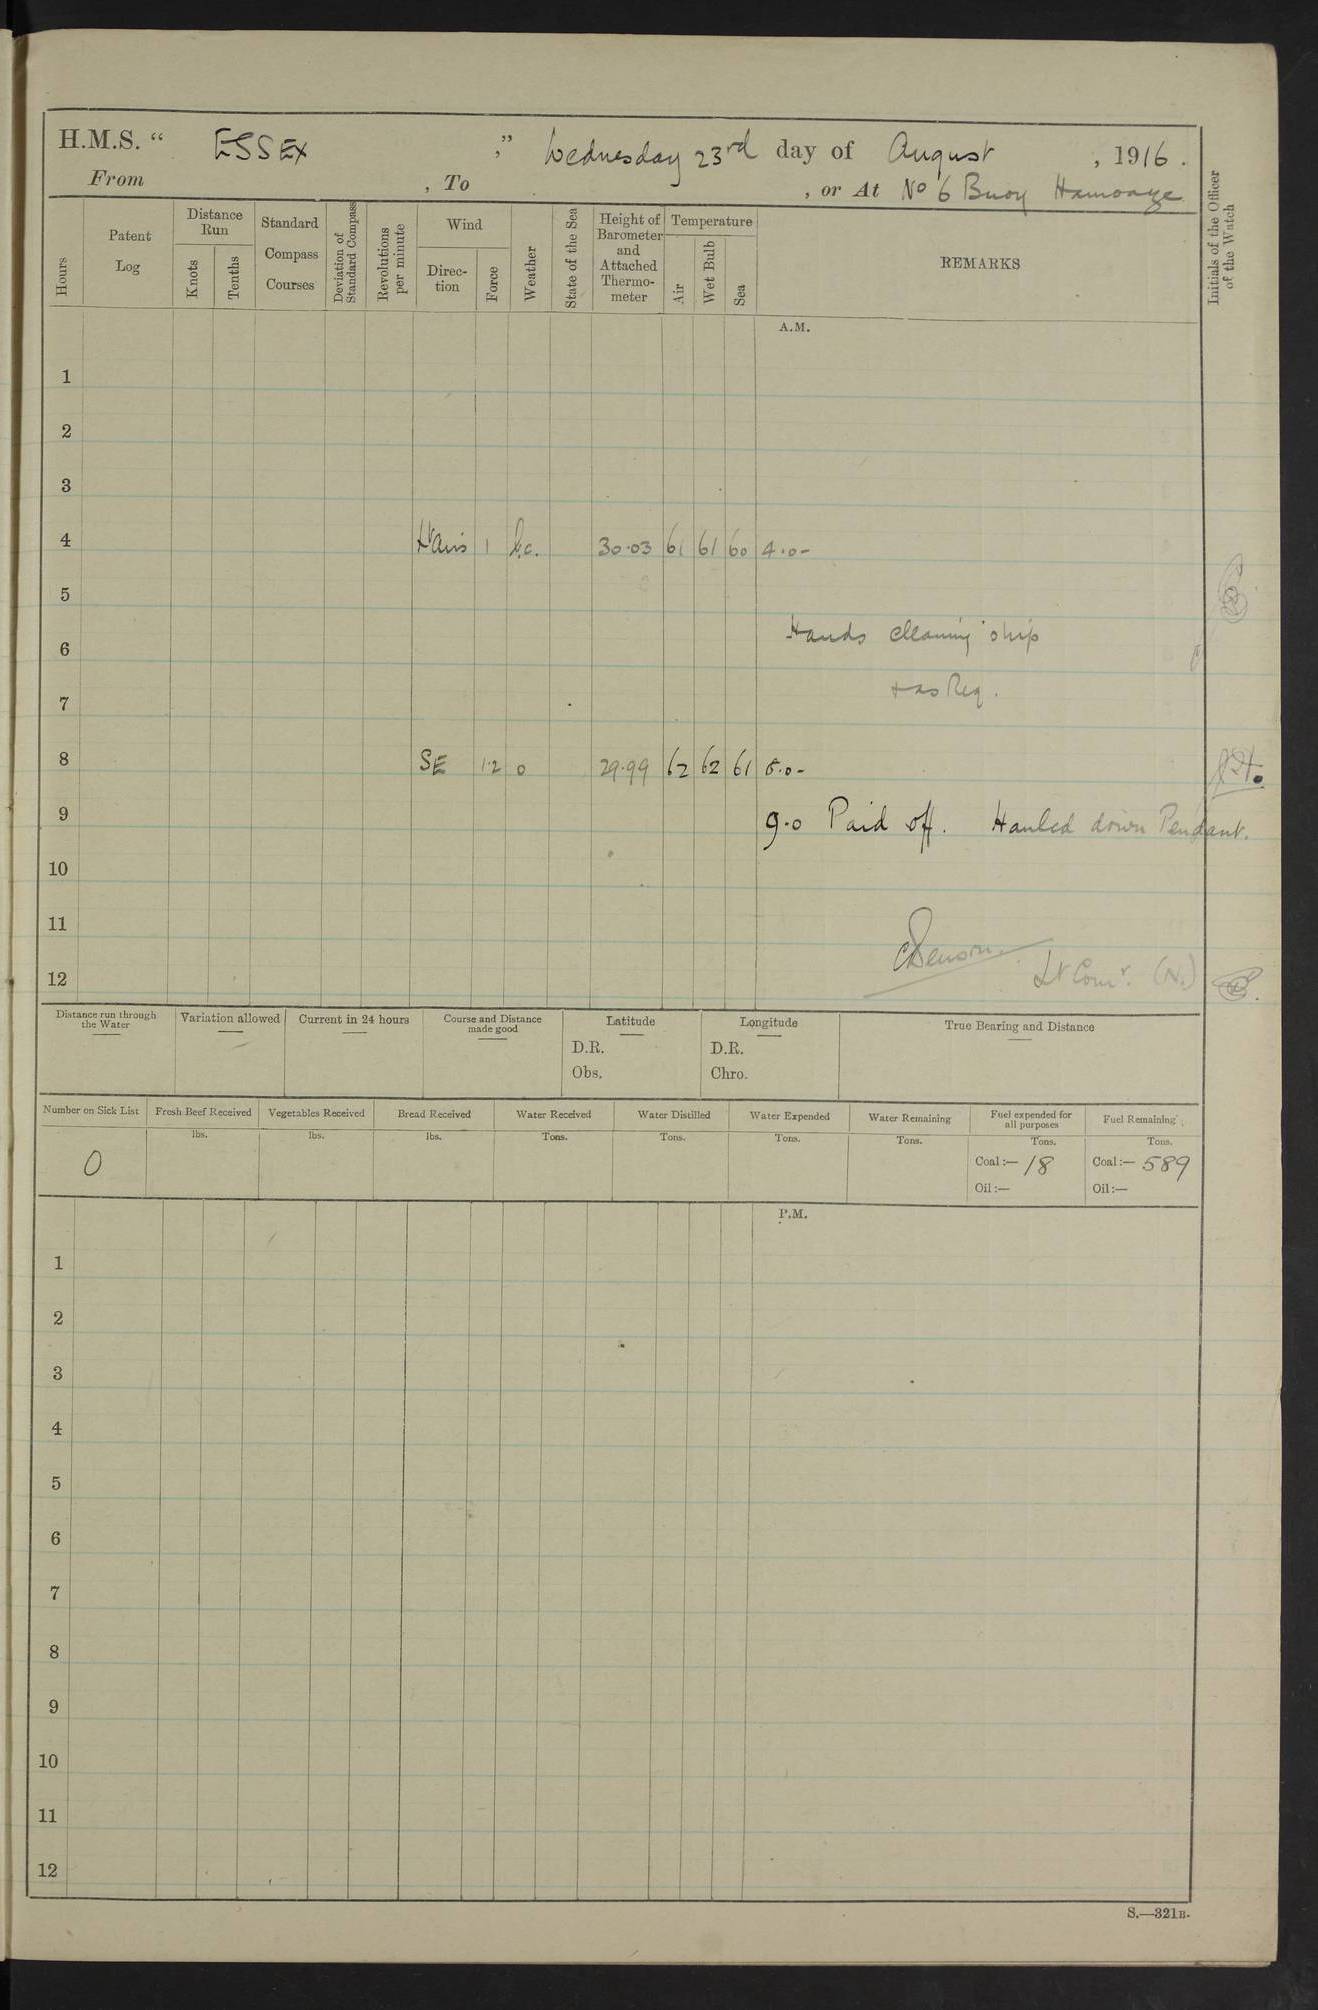 H.M.S. “ ESSEX ,” Wednesday 23rd day of August , 1916 .
From , To , or At No 6 Buoy Hamoaze
Hours
Patent Log
Distance Run
Knots
Tenths
Standard Compass Courses
Deviation of Standard Compass
Revolutions per minute
Wind
Direc-tion
Force
Weather
State of the Sea
Height of Barometer and Attached Thermo-meter
Temperature
Air
Wet Bulb
Sea
REMARKS
Initials of the Officer of the Watch
A.M.
1
2
3
4 1 b.c. 30.03 61 61 60 4.0-
5
Hands cleaning ship
6
+ as Req.
7
8 SE 1.2 o 29.99 62 62 61 8.0-
9 9.0 Paid off. Hauled down Pendant.
10
11
Lt Comr. (N.)
12
Distance run through the Water
Variation allowed
Current in 24 hours
Course and Distance made good
Latitude
D.R.
Obs.
Longitude
D.R.
Chro.
True Bearing and Distance
Number on Sick List
0
Fresh Beef Received
lbs.
Vegetables Received
lbs.
Bread Received
lbs.
Water Received
Tons.
Water Distilled
Tons.
Water Expended
Tons.
Water Remaining
Tons.
Fuel expended for all purposes
Tons.
Coal :— 18
Oil :—
Fuel Remaining
Tons.
Coal :— 589
Oil :—
P.M.
1
2
3
4
5
6
7
8
9
10
11
12
S.—321B.